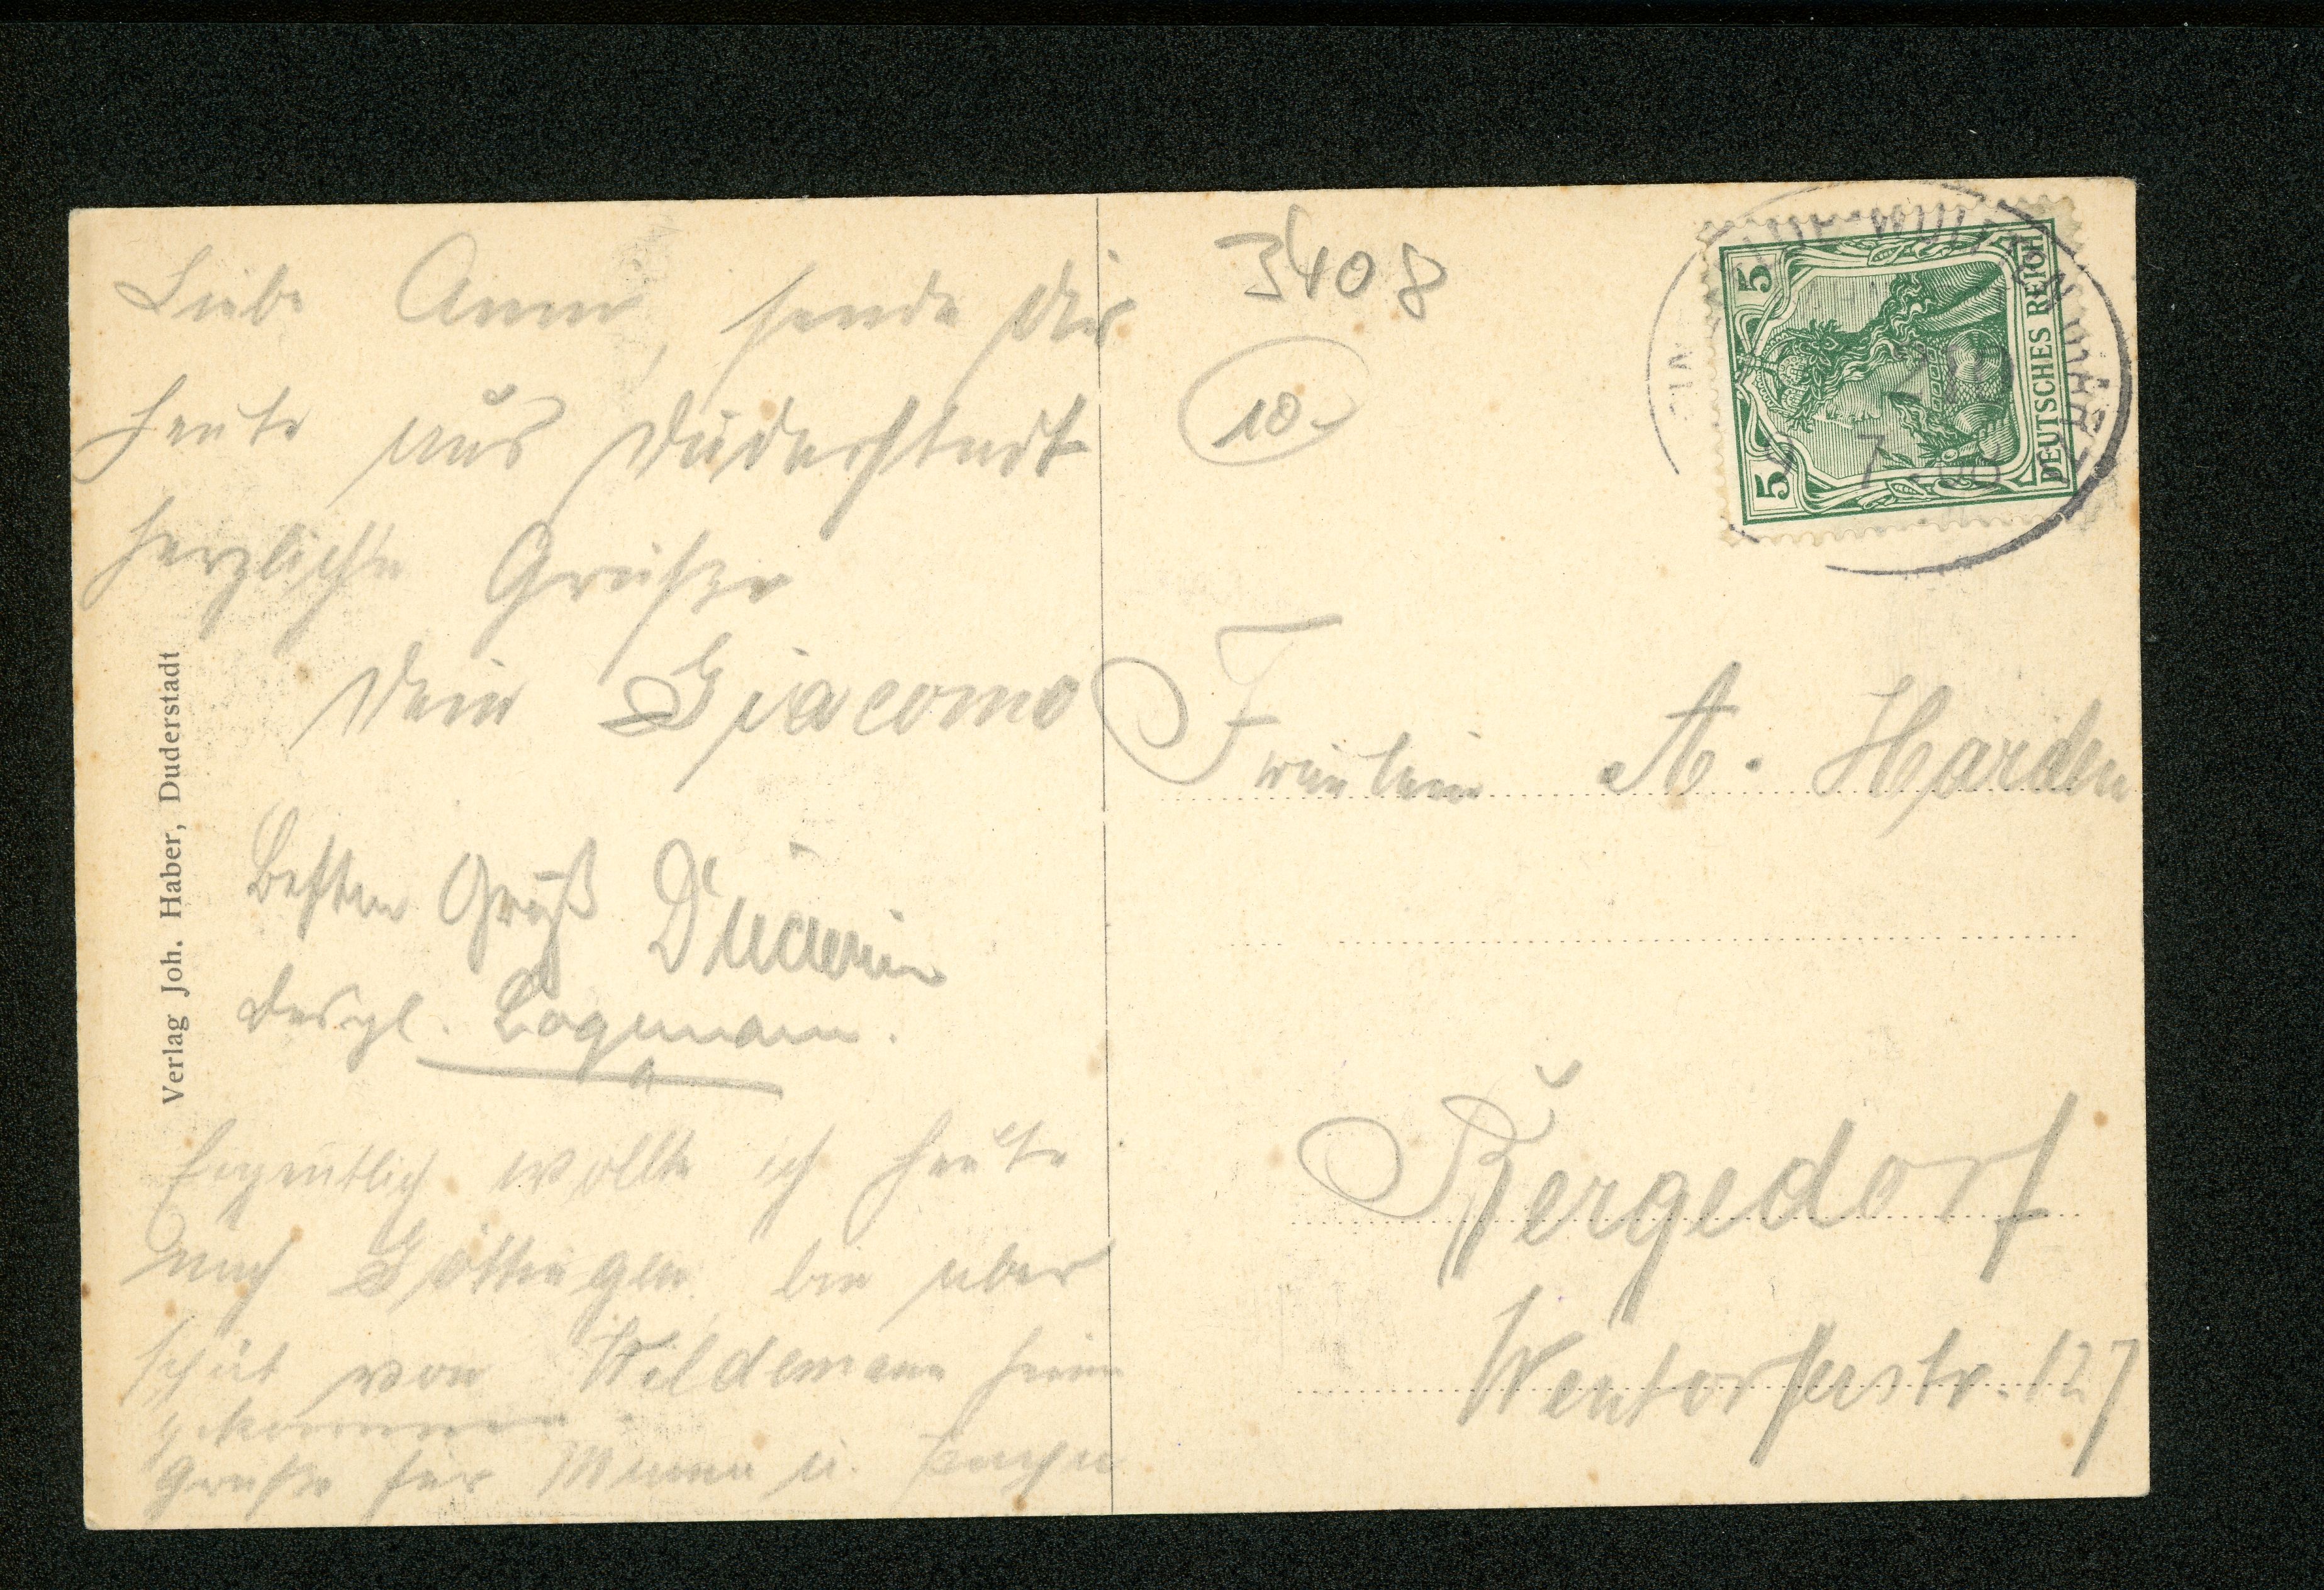 Liebe Anna, sende Dir
heute aus Duderstadt
herzliche Grüße
Dein Giacomo
Besten Gruß
desgl. Logemann.
Eigentlich wollte ich heute
nach Göttingen, bin aber
von Wildemann
gekommen
Grüße für Mama u.
Verlag Joh. Haber, Duderstadt
3408
10.-
5 5
DEUTSCHES REICH
Fräulein A. Harden
Bergedorf
Wentorferstr. 127